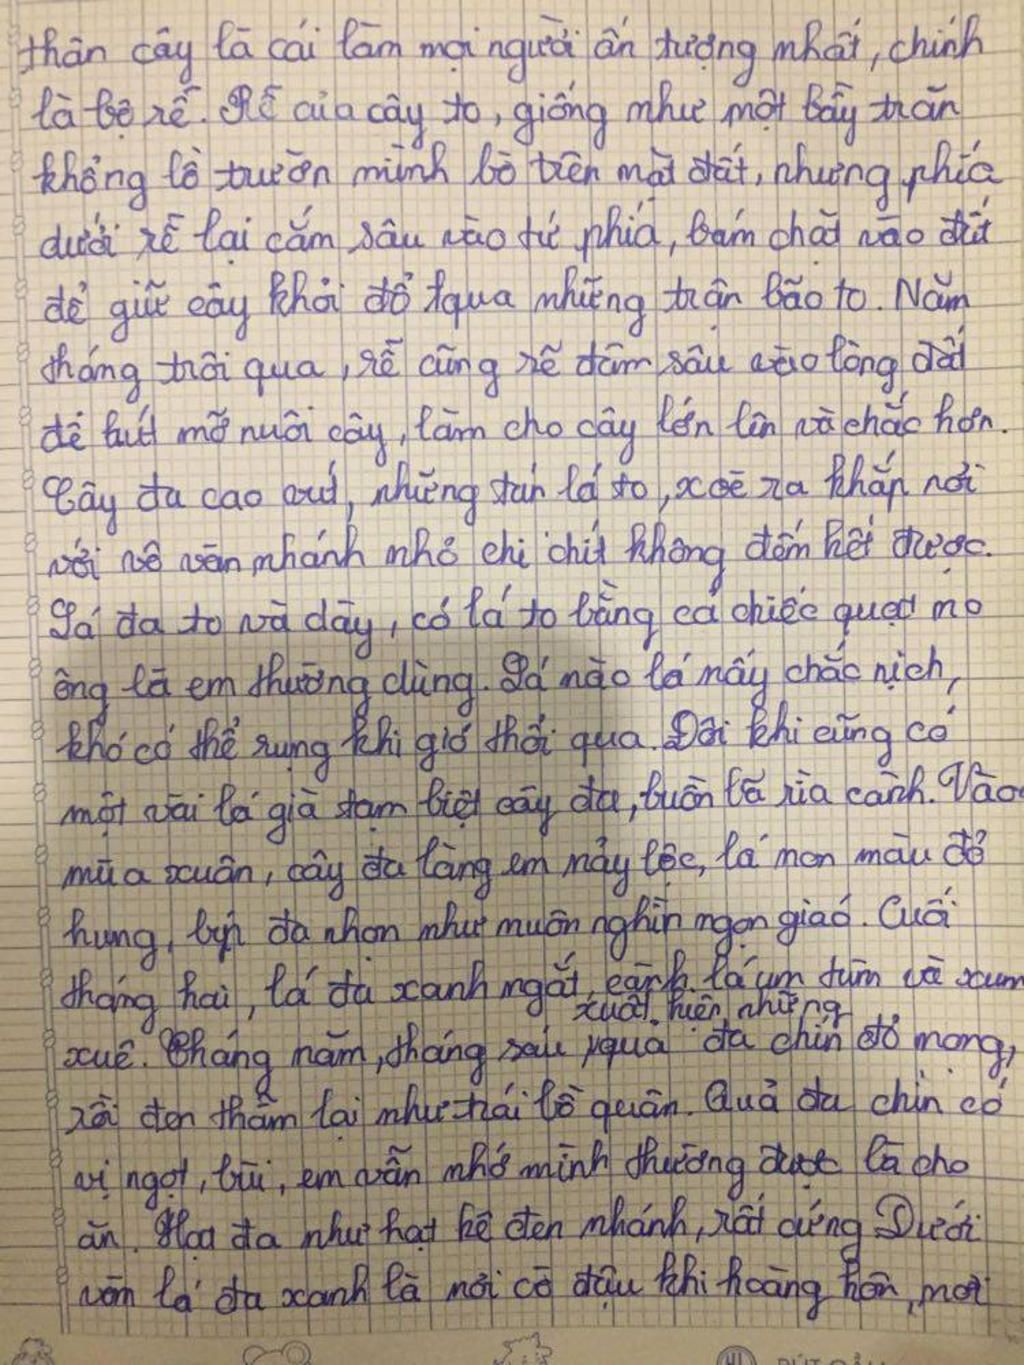 thân cây là cái làm mọi người ấn tượng nhất, chính
là bộ rễ. Rễ của cây to, giống như một bầy trăn
khổng lồ trườn mình bò trên mặt đất, nhưng phía
dưới rễ lại cắm sâu vào tứ phía, bám chặt vào đất
để giữ cây khỏi đổ qua những trận bão to. Năm
tháng trôi qua, rễ cũng sẽ đâm sâu vào lòng đất
để hút mỡ nuôi cây, làm cho cây lớn lên và chắc hơn.
Cây đa cao vút, những tán lá to, xoè ra khắp nơi
với vô vàn nhánh nhỏ chi chít không đếm hết được.
Lá đa to và dày, có lá to bằng cả chiếc quạt mo
ông bà em thường dùng. Lá nào lá nấy chắc nịch,
khó có thể rụng khi gió thổi qua. Đôi khi cũng có
một vài lá già tạm biệt cây đa, buồn bã rìa cành. Vào
mùa xuân, cây đa làng em nảy lộc, lá non màu đỏ
hung, búp đa nhọn như muôn nghìn ngọn giáo. Cuối
tháng hai, lá đa xanh ngắt, cành lá um tùm và xum
xuất hiện những
xuê. Tháng năm, tháng sáu qua đa chín đỏ mọng,
rồi đen thẫm lại như trái bồ quân. Quả đa chín có
vị ngọt, bùi, em vẫn nhớ mình thường được bà cho
ăn. Hoa đa như hạt kê đen nhánh, rất cứng Dưới
vòm lá đa xanh là nơi cò đậu khi hoàng hôn, nơi